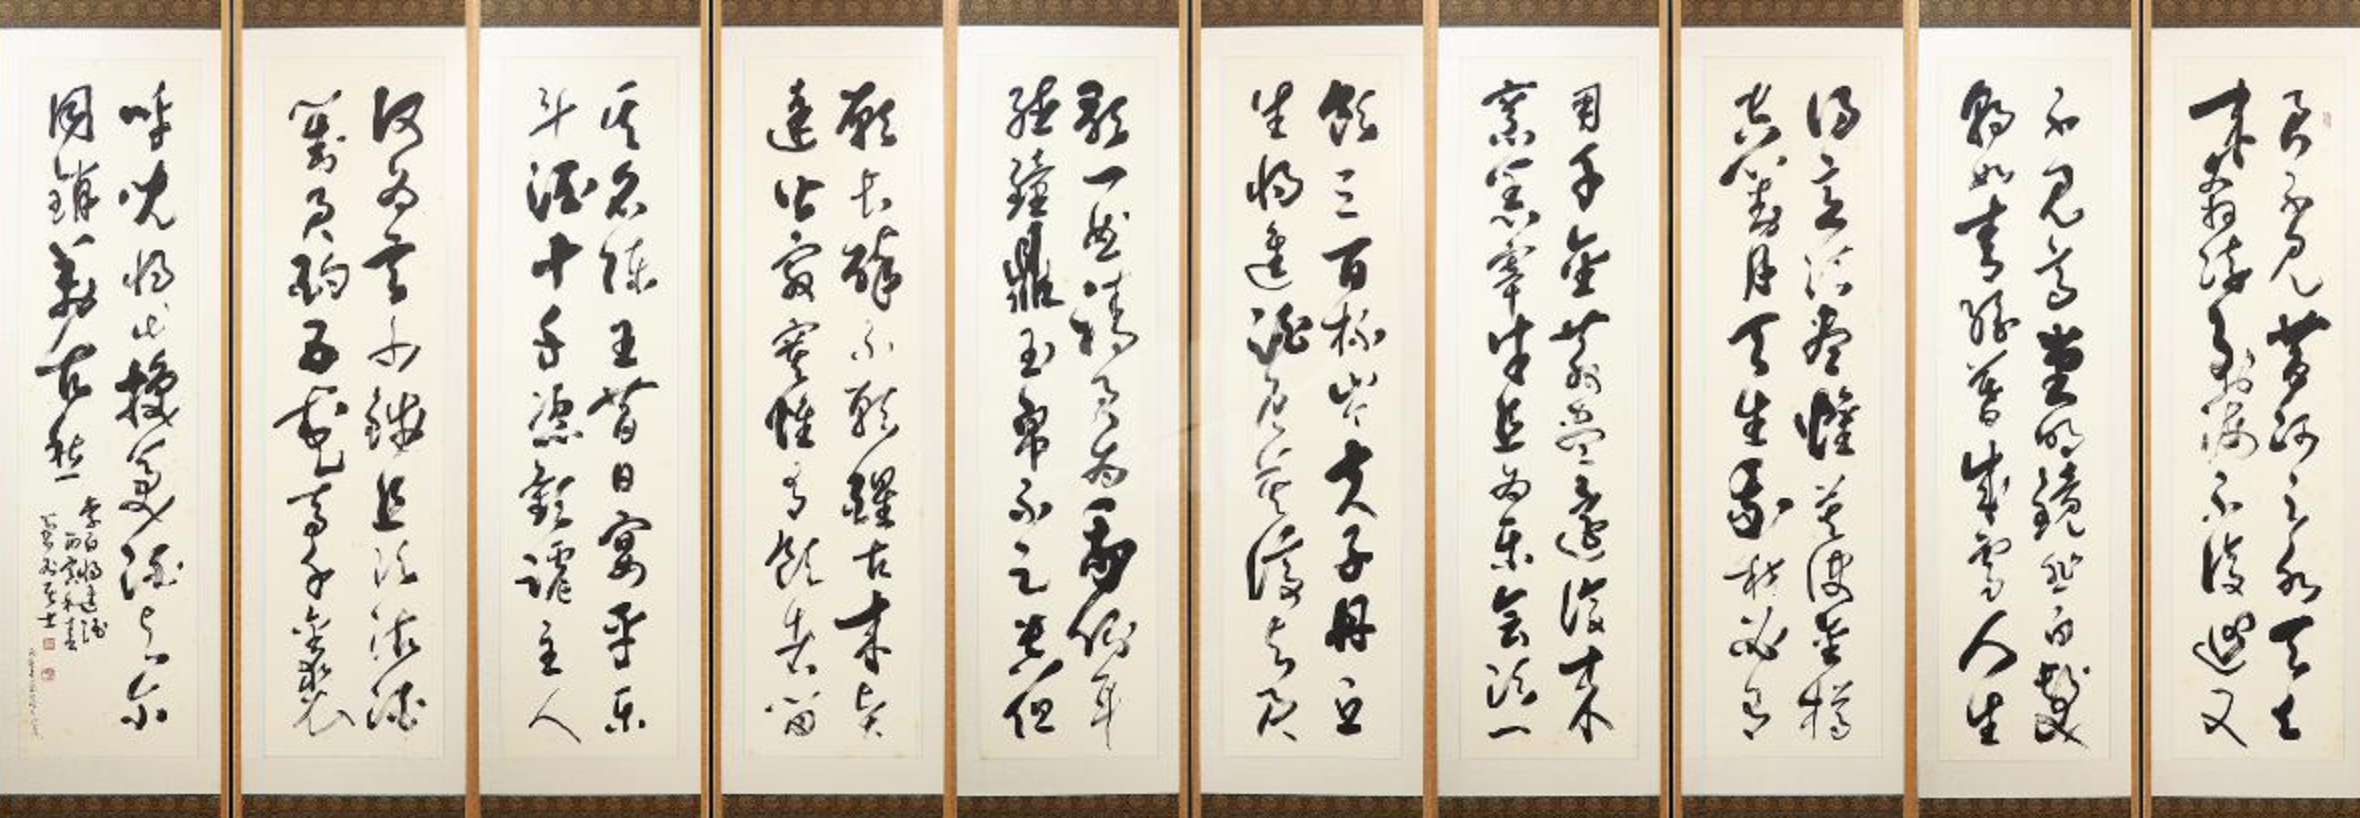 君不見黃河之水天上
來奔流到海不復迴又
不見高堂明鏡悲白髮
朝如青絲暮成雪人生
得意須盡懽莫使金樽
空對月天生我材必有
用千金散盡還復來
烹羔宰牛且為樂會須一
飲三百杯岑夫子丹丘
生將進酒君莫停與君
歌一曲請君為我側耳
聽鐘鼎玉帛不足貴但
願長醉不願醒古來賢
達皆寂寞惟有飲者留
其名陳王昔日宴平樂
斗酒十千恣歡謔主人
何為言少錢且須沽酒
對君酌五花馬千金裘
呼兒將出換美酒與爾
同銷萬古愁
李白將進酒
丙寅
居士